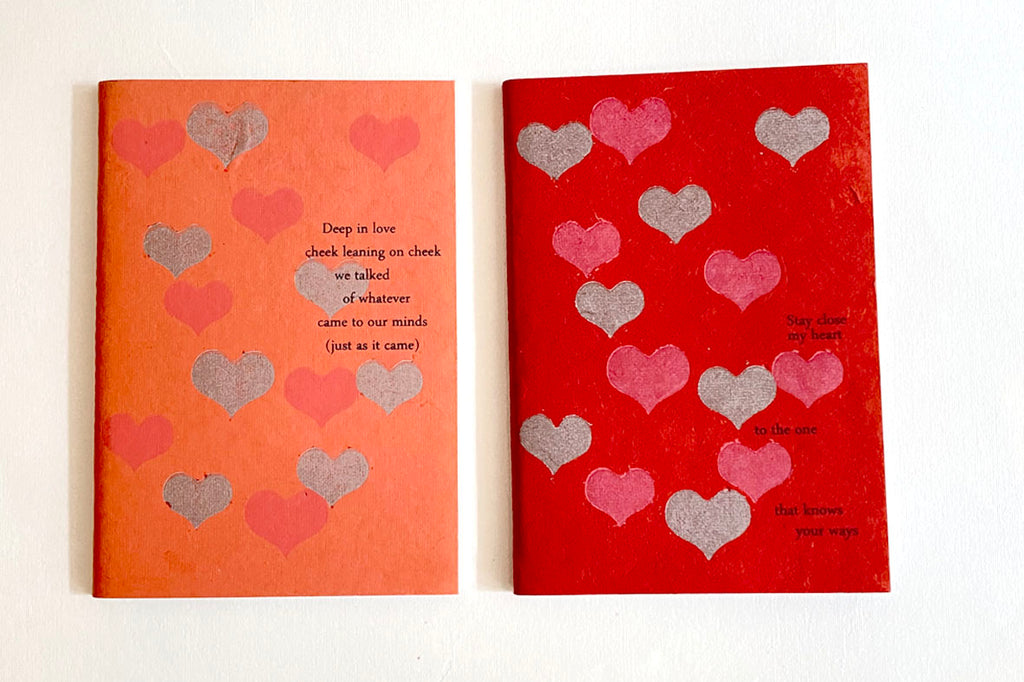 Deep in love
cheek leaning on cheek
we talked
of whatever
came to our minds
(just as it came)
Stay close
my heart
to the one
that knows
your ways